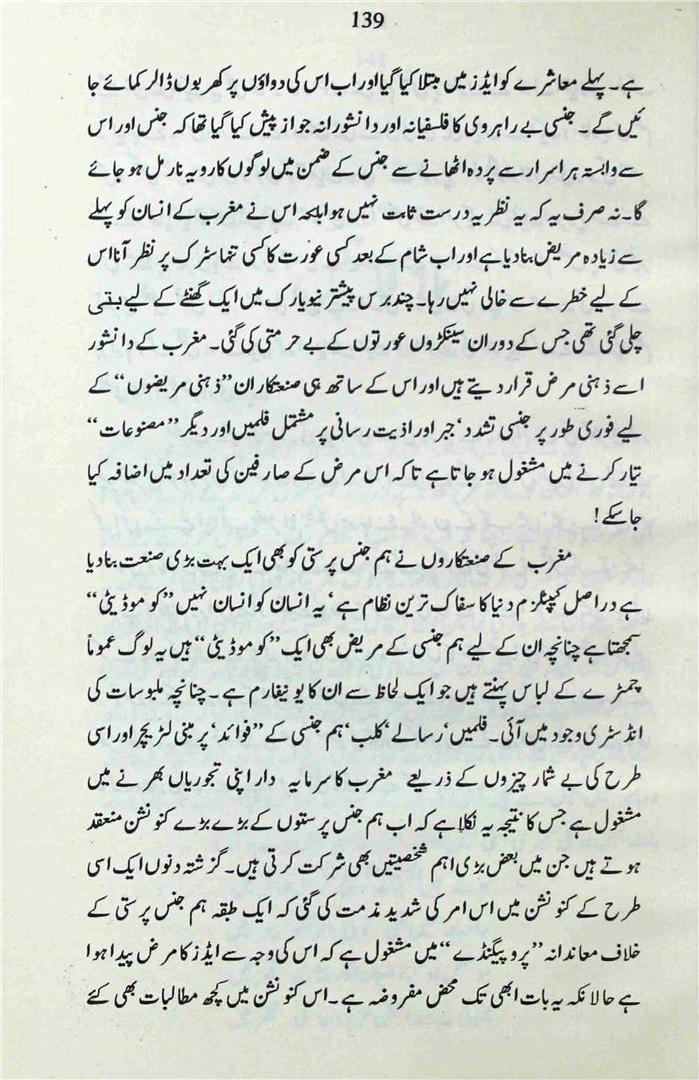 139
ہے۔ پہلے معاشرے کو ایڈز میں مبتلا کیا گیا اور اب اس کی دواؤں پر کھربوں ڈالر کمائے جا
ئیں گے۔ جنسی بے راہروی کا فلسفیانہ اور دانشورانہ جواز پیش کیا گیا تھا کہ جنس اور اس
سے وابستہ ہر اسرار سے پردہ اٹھانے سے جنس کے ضمن میں لوگوں کا رویہ نارمل ہو جائے
گا۔ نہ صرف یہ کہ یہ نظریہ درست ثابت نہیں ہوا بلکہ اس نے مغرب کے انسان کو پہلے
سے زیادہ مریض بنادیا ہے اور اب شام کے بعد کسی عورت کا کسی تنہا سڑک پر نظر آنا اس
کے لیے خطرے سے خالی نہیں رہا۔ چند برس پیشتر نیویارک میں ایک گھنٹے کے لیے بتی
چلی گئی تھی جس کے دوران سینکڑوں عورتوں کے بے حرمتی کی گئی۔ مغرب کے دانشور
اسے ذہنی مرض قرار دیتے ہیں اور اس کے ساتھ ہی صنعتکار ان ’’ذہنی مریضوں‘‘ کے
لیے فوری طور پر جنسی تشدد‘ جبر اور اذیت رسانی پر مشتمل فلمیں اور دیگر ’’مصنوعات‘‘
تیار کرنے میں مشغول ہو جاتا ہے تاکہ اس مرض کے صارفین کی تعداد میں اضافہ کیا
جاسکے!
مغرب کے صنعتکاروں نے ہم جنس پرستی کو بھی ایک بہت بڑی صنعت بنادیا
ہے دراصل کیپٹلزم دنیا کا سفاک ترین نظام ہے‘ یہ انسان کو انسان نہیں ’’کوموڈیٹی‘‘
سمجھتا ہے چنانچہ ان کے لیے ہم جنسی کے مریض بھی ایک ’’کوموڈیٹی‘‘ ہیں یہ لوگ عموماً
چمڑے کے لباس پہنتے ہیں جو ایک لحاظ سے ان کا یونیفارم ہے۔ چنانچہ ملبوسات کی
انڈسٹری وجود میں آئی۔ فلمیں‘ رسالے‘ کلب‘ ہم جنسی کے ’’فوائد‘ پر مبنی لٹریچر اور اسی
طرح کی بے شمار چیزوں کے ذریعے مغرب کا سرمایہ دار اپنی تجوریاں بھرنے میں
مشغول ہے جس کا نتیجہ یہ نکلا ہے کہ اب ہم جنس پرستوں کے بڑے بڑے کنونشن منعقد
ہوتے ہیں جن میں بعض بڑی اہم شخصیتیں بھی شرکت کرتی ہیں۔ گزشتہ دنوں ایک اسی
طرح کے کنونشن میں اس امر کی شدید مذمت کی گئی کہ ایک طبقہ ہم جنس پرستی کے
خلاف معاندانہ ’’پروپیگنڈے‘‘ میں مشغول ہے کہ اس کی وجہ سے ایڈز کا مرض پیدا ہوا
ہے حالانکہ یہ بات ابھی تک محض مفروضہ ہے۔ اس کنونشن میں کچھ مطالبات بھی کئے